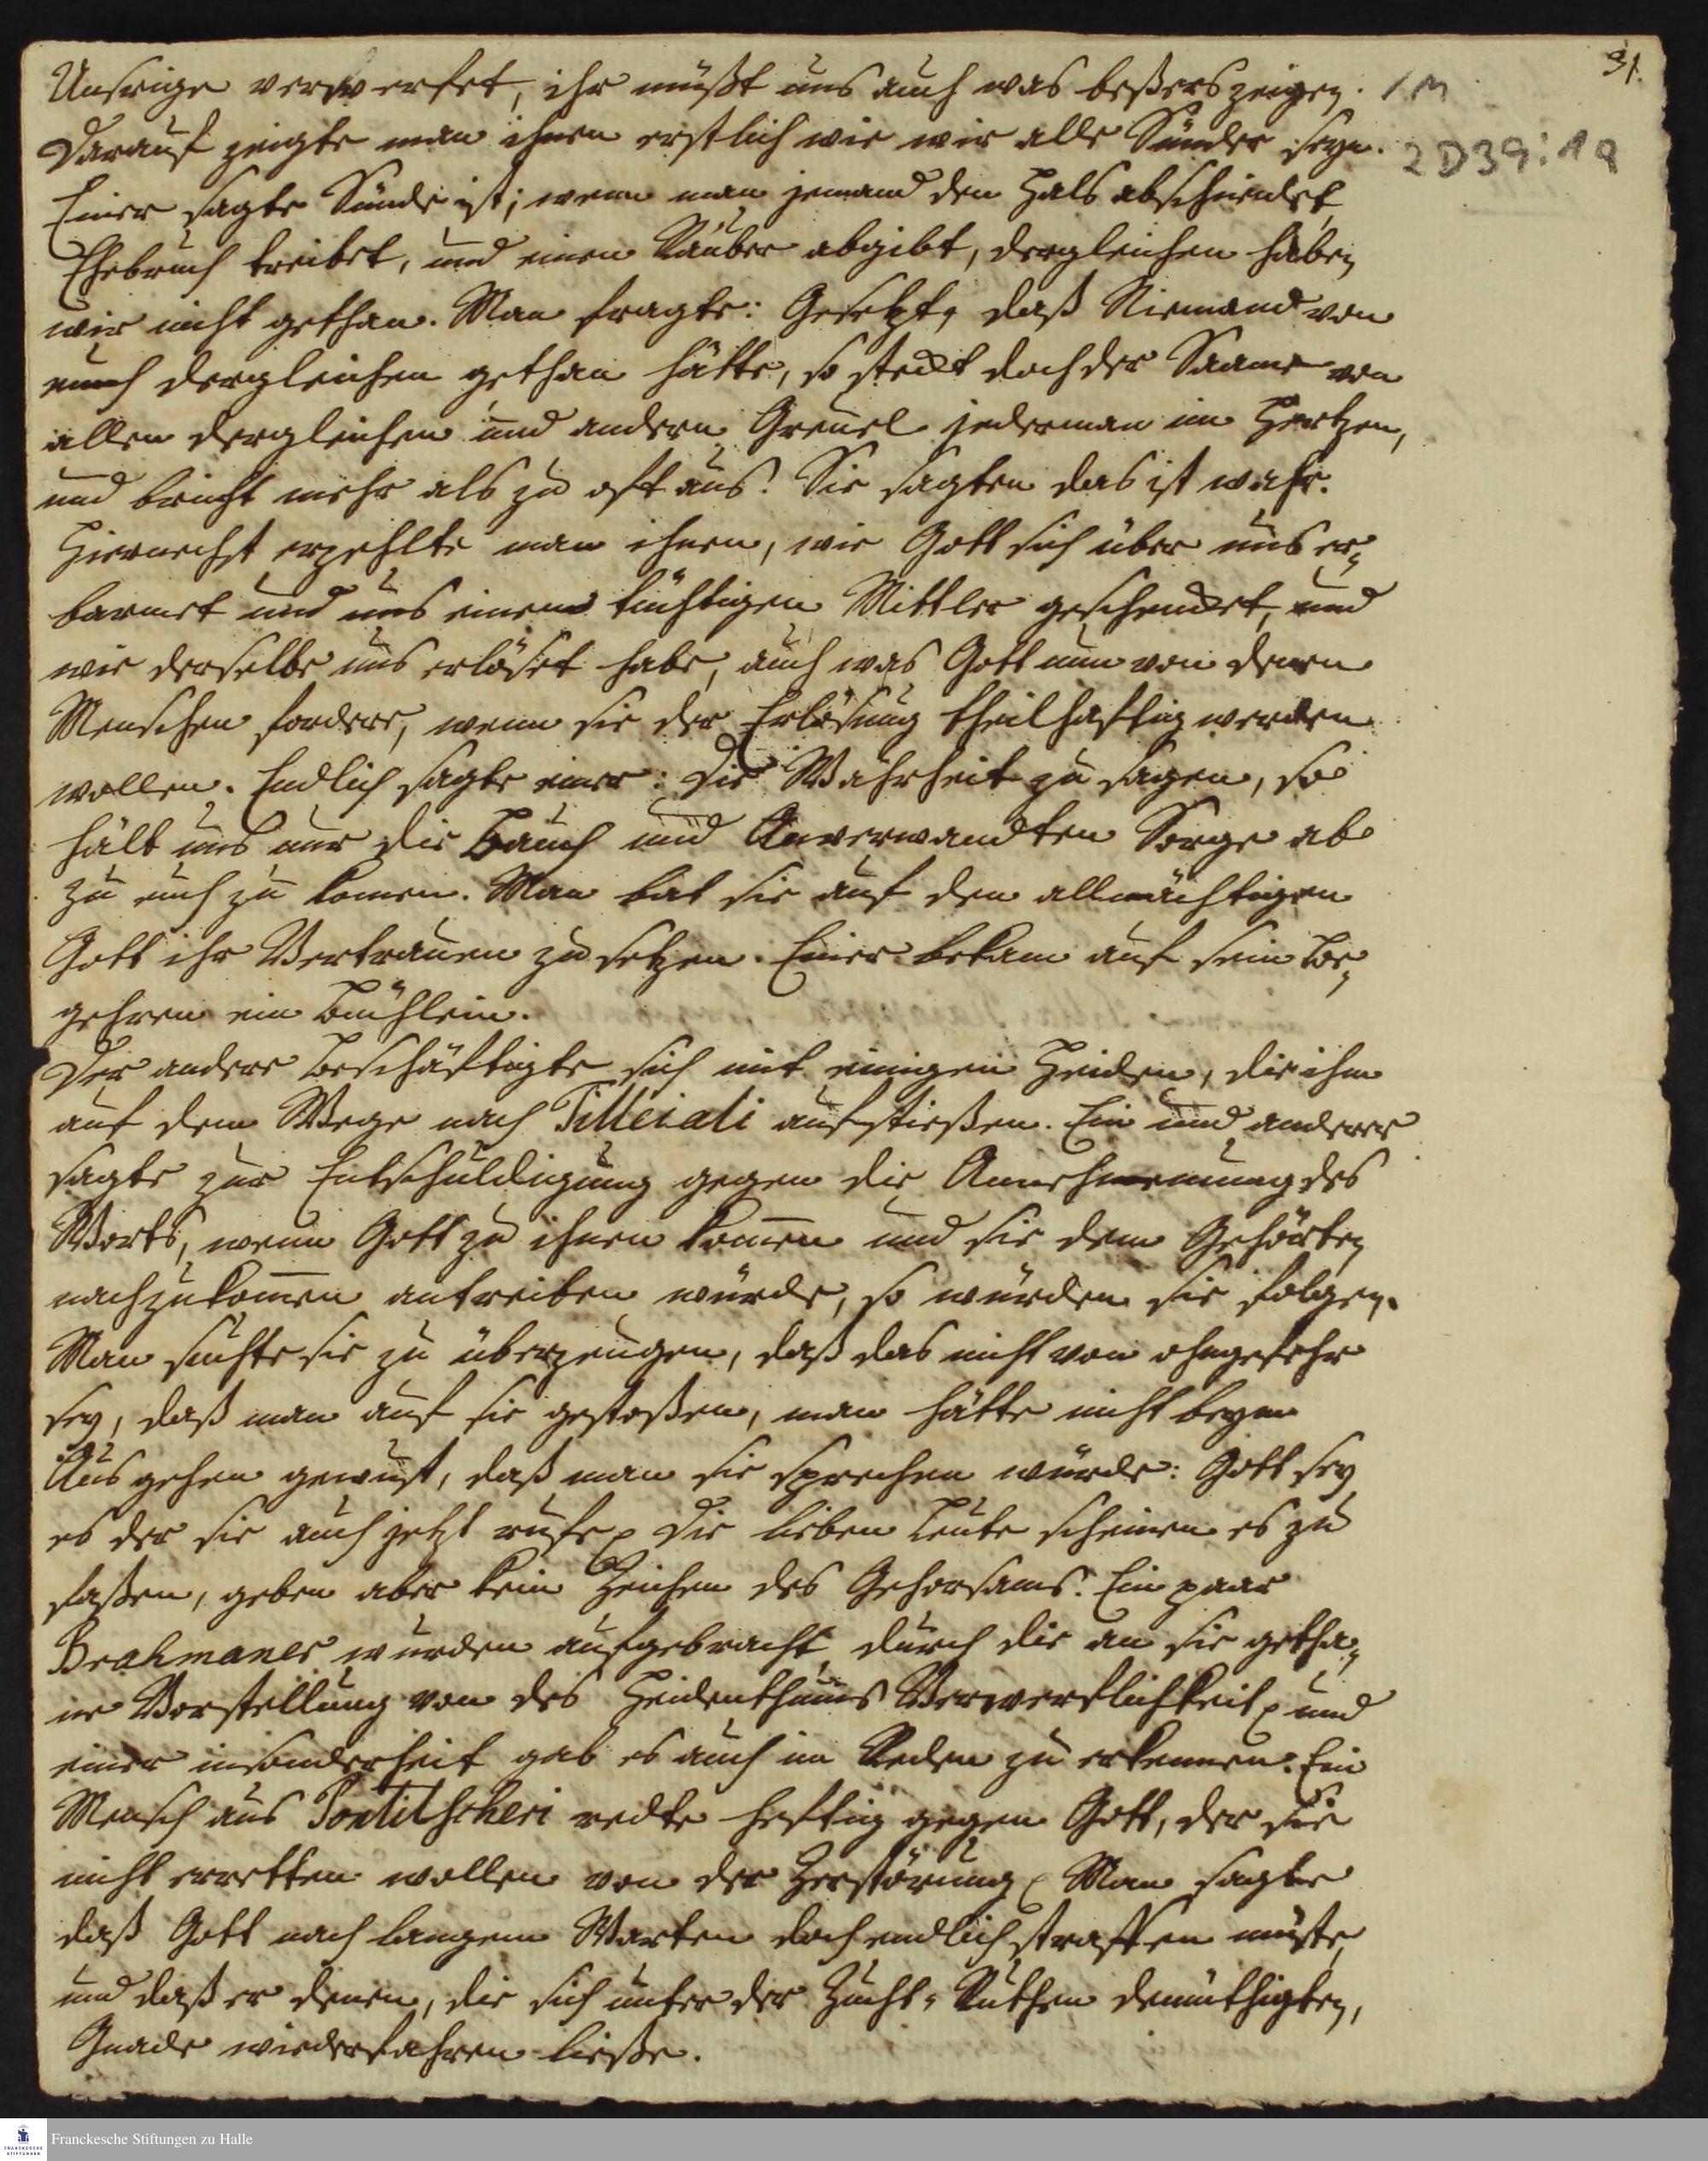 31.
1 M
2 D39:19
Unsrige verwerfet, ihr müßt uns auch was beßers zeigen.
Darauf zeigte man ihnen erstlich wie wir alle Sünder seyn.
Einer sagte Sünde ist; wenn man jemand den Hals abschneidet
Ehebruch treibet, und einen Räuber abgibt, dergleichen haben
wir nicht gethan. Man fragte: Gesetzt, daß Niemand von
euch dergleichen gethan hätte, so steckt doch der Saame von
allen dergleichen und andern Greuel jederman im Hertzen,
und bricht mehr als zu oft aus? Sie sagten das ist wahr.
Hiernechst erzehlte man ihnen, wie Gott sich über uns er-
barmet und uns einen tüchtigen Mittler geschencket, und
wie derselbe uns erlöset habe, auch was Gott nun von denen
Menschen fordere, wenn sie der Erlösung theilhaftig werden
wollen. Endlich sagte einer: die Wahrheit zu sagen, so
hält uns nur die Bauch und Anverwandten Sorge ab
zu euch zu komen. Man bat sie auf den allmächtigen
Gott ihr Vertrauen zu setzen. Einer bekam auf sein Be-
gehren ein Büchlein.
Der andere beschäftigte sich mit einigen Heiden, die ihm
auf dem Wege nach Tilleiali aufstießen. Ein und anderer
sagte zur Entschuldigung gegen die Annehmung des
Worts, wenn Gott zu ihnen kommen und sie dem Gehörten
nachzukommen antreiben würde, so würden sie folgen.
Man suchte sie zu überzeugen, daß das nicht von ohngefehr
sey, daß man auf sie gestoßen, man hätte nicht beym
Ausgehen gewust, daß man sie sprechen würde: Gott sey
es der sie auch jetzt rufe. Die lieben Leute scheinen es zu
faßen, geben aber kein Zeichen des Gehorsams. Ein paar
Brahmaner wurden aufgebracht durch die an sie getha-
ne Vorstellung von des Heidenthums Verwerflichkeit und
einer insonderheit gab es auch im Reden zu erkennen. Ein
Mensch aus Pontitscheri redte heftig gegen Gott, der sie
nicht erretten wollen von der Zerstörung. Man sagte
daß Gott nach langem Warten doch endlich straffen müste,
und daß er denen, die sich unter der Zucht-Ruthen demüthigten,
Gnade wiederfahren ließe.
Franckesche Stiftungen zu Halle
FRANCKESCHE
STIFTUNGEN